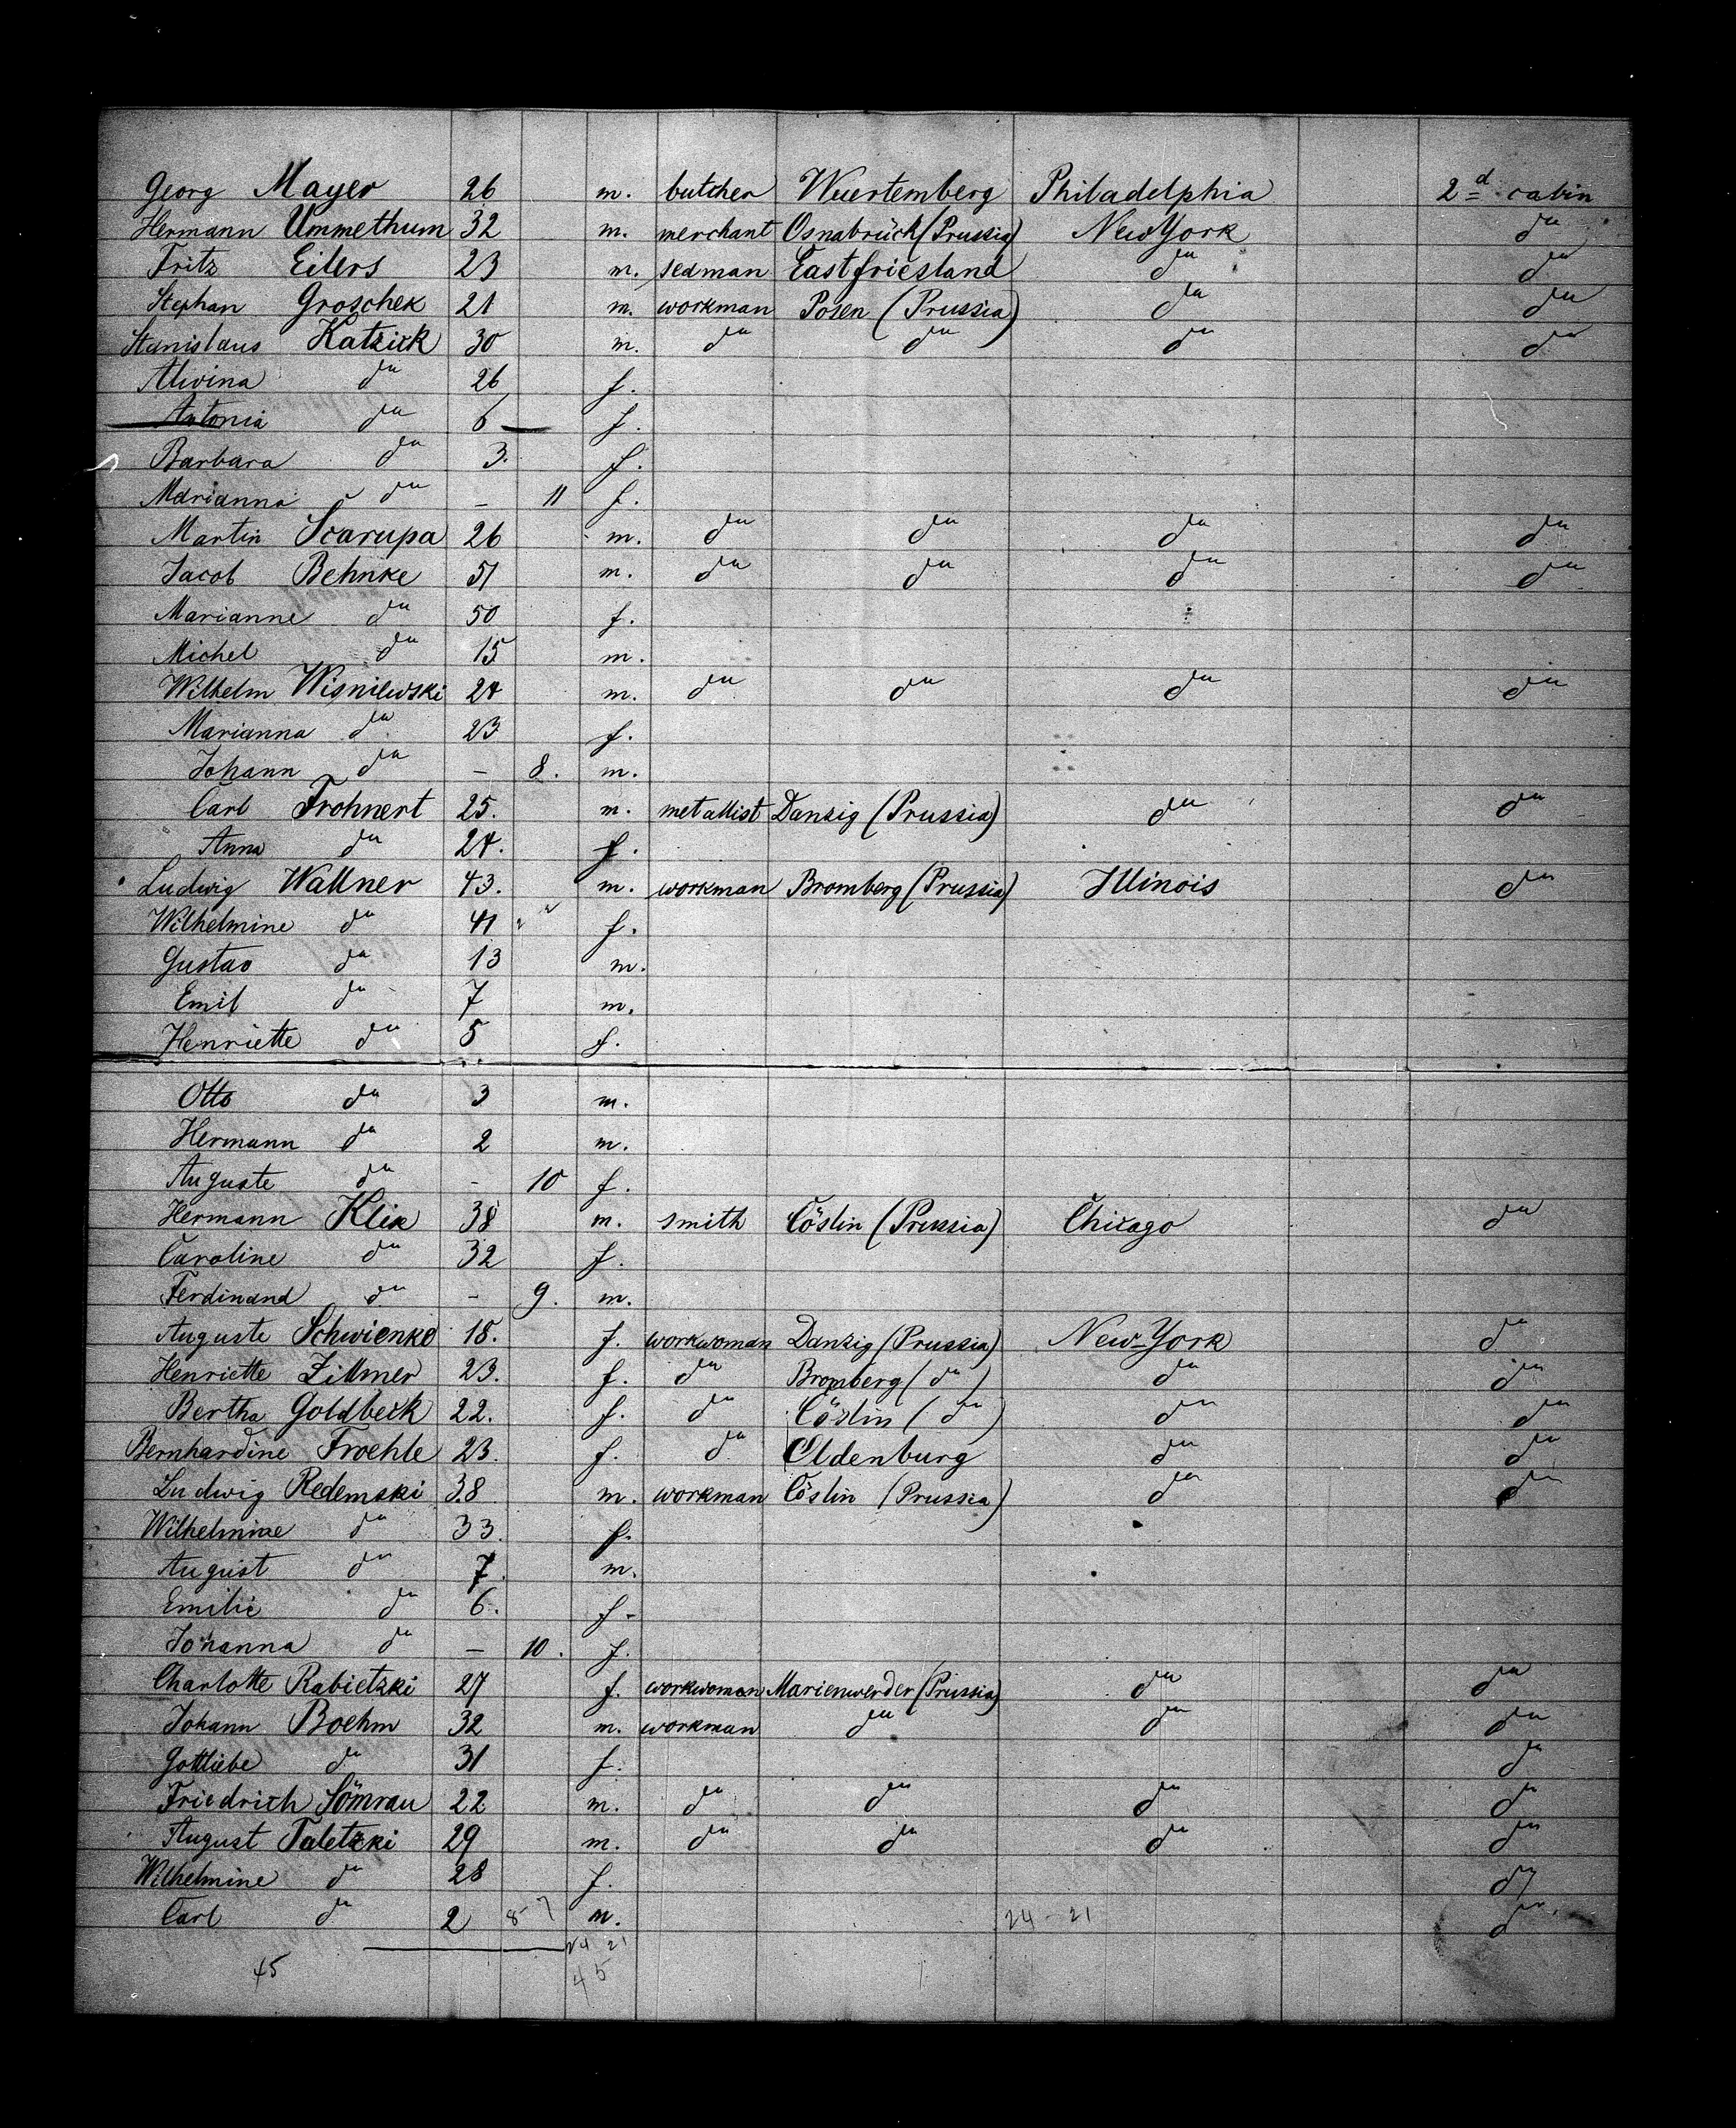 Georg Mayer 26 m. butcher Wuertemberg Philadelphia 2d cabin
Hermann Ummethum 32 m. merchant Osnabrück (Prussia) New York do
Fritz Eilers 23 m. seaman Eastfriesland do do
Stephan Groschek 21 m. workman Posen (Prussia) do do
Stanislaus Katzick 30 m. do do do do
Alwina do 26 f.
Antonia do 6 f.
Barbara do 3. f.
Marianna do - 11 f.
Martin Scarupa 26 m. do do do do
Jacob Behnke 51 m. do do do do
Marianne do 50 f.
Michel do 15 m.
Wilhelm Wisnilwski 24 m. do do do do
Marianna do 23 f.
Johann do - 8. m.
Carl Frohnert 25. m. metallist Danzig (Prussia) do do
Anna do 24. f.
Ludwig Wallner 43. m. workman Bromberg (Prussia) Illinois do
Wilhelmine do 41 f.
Gustav do 13 m.
Emil do 7 m.
Henriette do 5 f.
Otto do 3 m.
Hermann do 2 m.
Auguste do - 10 f.
Hermann Klix 38 m. smith Cöslin (Prussia) Chicago do
Caroline do 32 f.
Ferdinand do - 9. m.
Auguste Schwienke 18. f. workwoman Danzig (Prussia) New-York do
Henriette Zillmer 23. f. do Bromberg (do) do do
Bertha Goldbeck 22. f. do Cöslin (do) do do
Bernhardine Froehle 23. f. do Oldenburg do do
Ludwig Redemski 38 m. workman Cöslin (Prussia) do do
Wilhelmine do 33. f.
August do 7. m.
Emilie do 6. f.
Johanna do - 10. f.
Charlotte Rabietzki 27 f. workwoman Marienwerder (Prussia) do do
Johann Boehm 32 m. workman do do do
Gottliebe do 31 f. do
Friedrich Sömrau 22 m. do do do do
August Taletzki 29 m. do do do do
Wilhelmine do 28 f. do
Carl do 2 8-7 m. 24-21 do
24 21
45 45